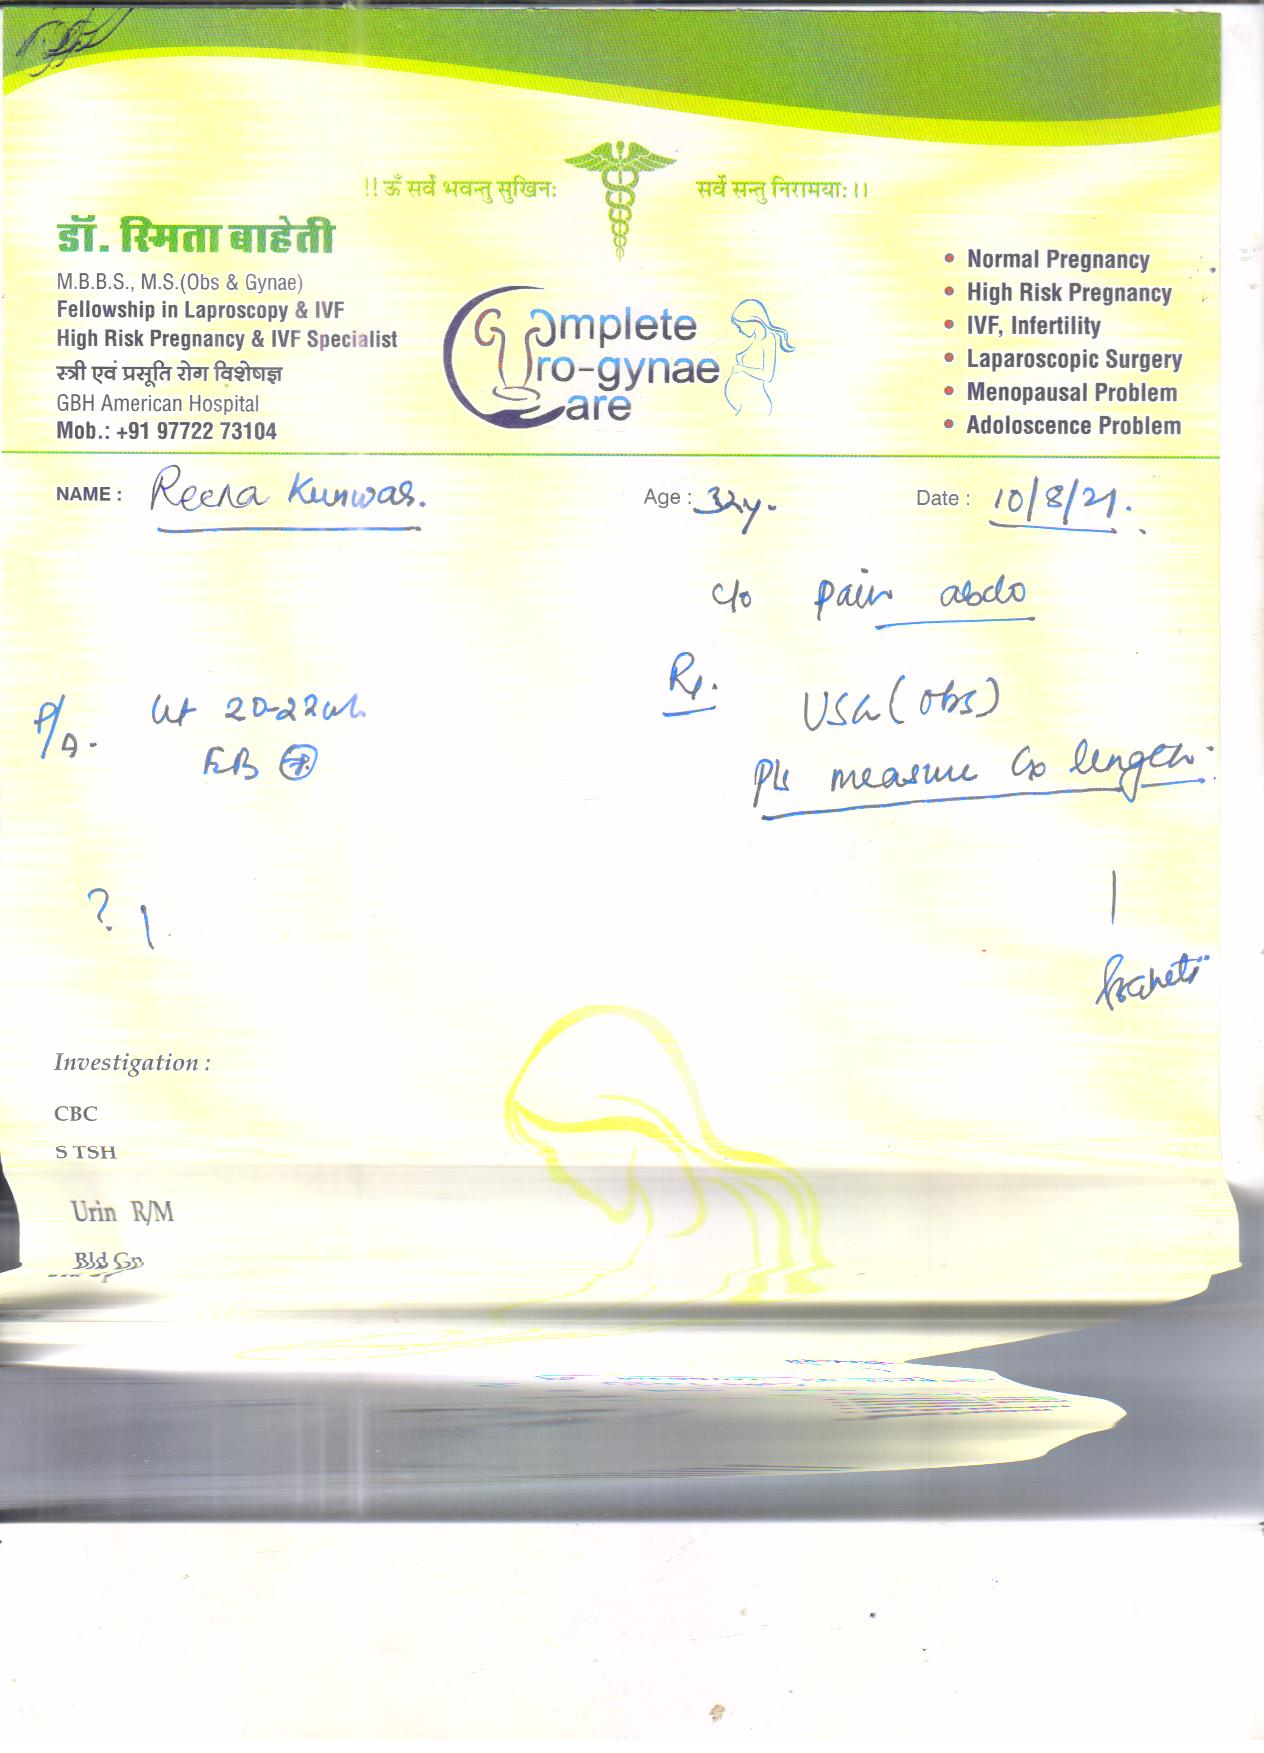 !! ॐ सर्वे भवन्तु सुखिनः सर्वे सन्तु निरामयाः।।
डॉ. स्मिता बाहेती
M.B.B.S., M.S.(Obs & Gynae)
Fellowship in Laproscopy & IVF
High Risk Pregnancy & IVF Specialist
स्त्री एवं प्रसूति रोग विशेषज्ञ
GBH American Hospital
Mob.: +91 97722 73104
Complete
Uro-gynae
Care
• Normal Pregnancy
• High Risk Pregnancy
• IVF, Infertility
• Laparoscopic Surgery
• Menopausal Problem
• Adoloscence Problem
NAME : Reena Kunwar. Age : 32y. Date : 10/8/21.
c/o pain abdo
P/A. Ut 20-22wk
Rx.
USG (Obs)
Pls measure Cx length.
?
Investigation :
CBC
S TSH
Urin R/M
Bld Gp